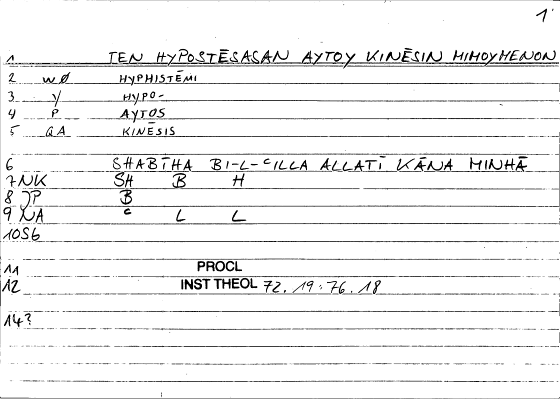 1
1 TEN HYPOSTĒSASAN AYTOY KINĒSIN MIMOYMENON
2 WØ HYPHISTĒMI
3 Y HYPO-
4 P AYTOS
5 QA KINĒSIS
6 SHABĪHA BI-L-ᶜILLA ALLATĪ KĀNA MINHĀ
7 NK SH B H
8 JP B
9 NA ᶜ L L
10 S6
11 PROCL
12 INST THEOL 72.19:76.18
14?